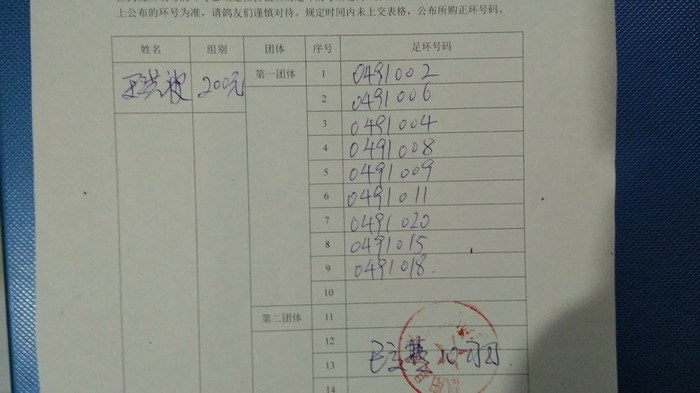 上公布的环号为准，请鸽友们谨慎对待。规定时间内未上交表格，公布所购正环号码。
姓名 组别 团体 序号 足环号码
200元 第一团体 1 0491002
2 0491006
3 0491004
4 0491008
5 0491009
6 0491011
7 0491020
8 0491015
9 0491018.
10
第二团体 11
12
13
14